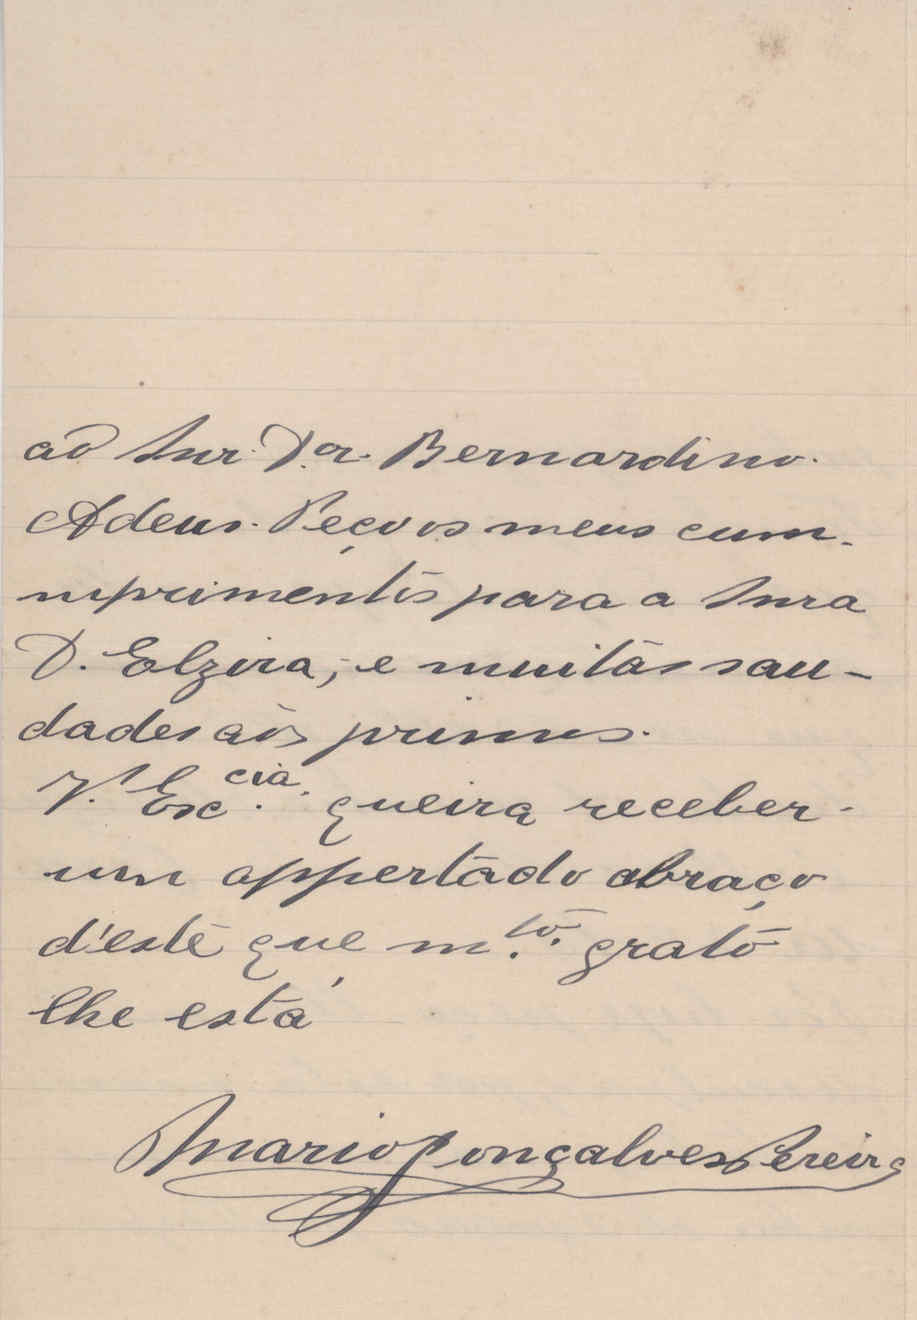 ao Snr. D.or. Bernardino.
Adeus. Peço os meus cum-
mprimentos para a Snra
D. Elzira, e muitas sau-
dades aos primos.
V. Exc.cia. queira receber
um appertado abraço
d'este que m.to. grato
lhe está
Mario Gonçalves Pereira